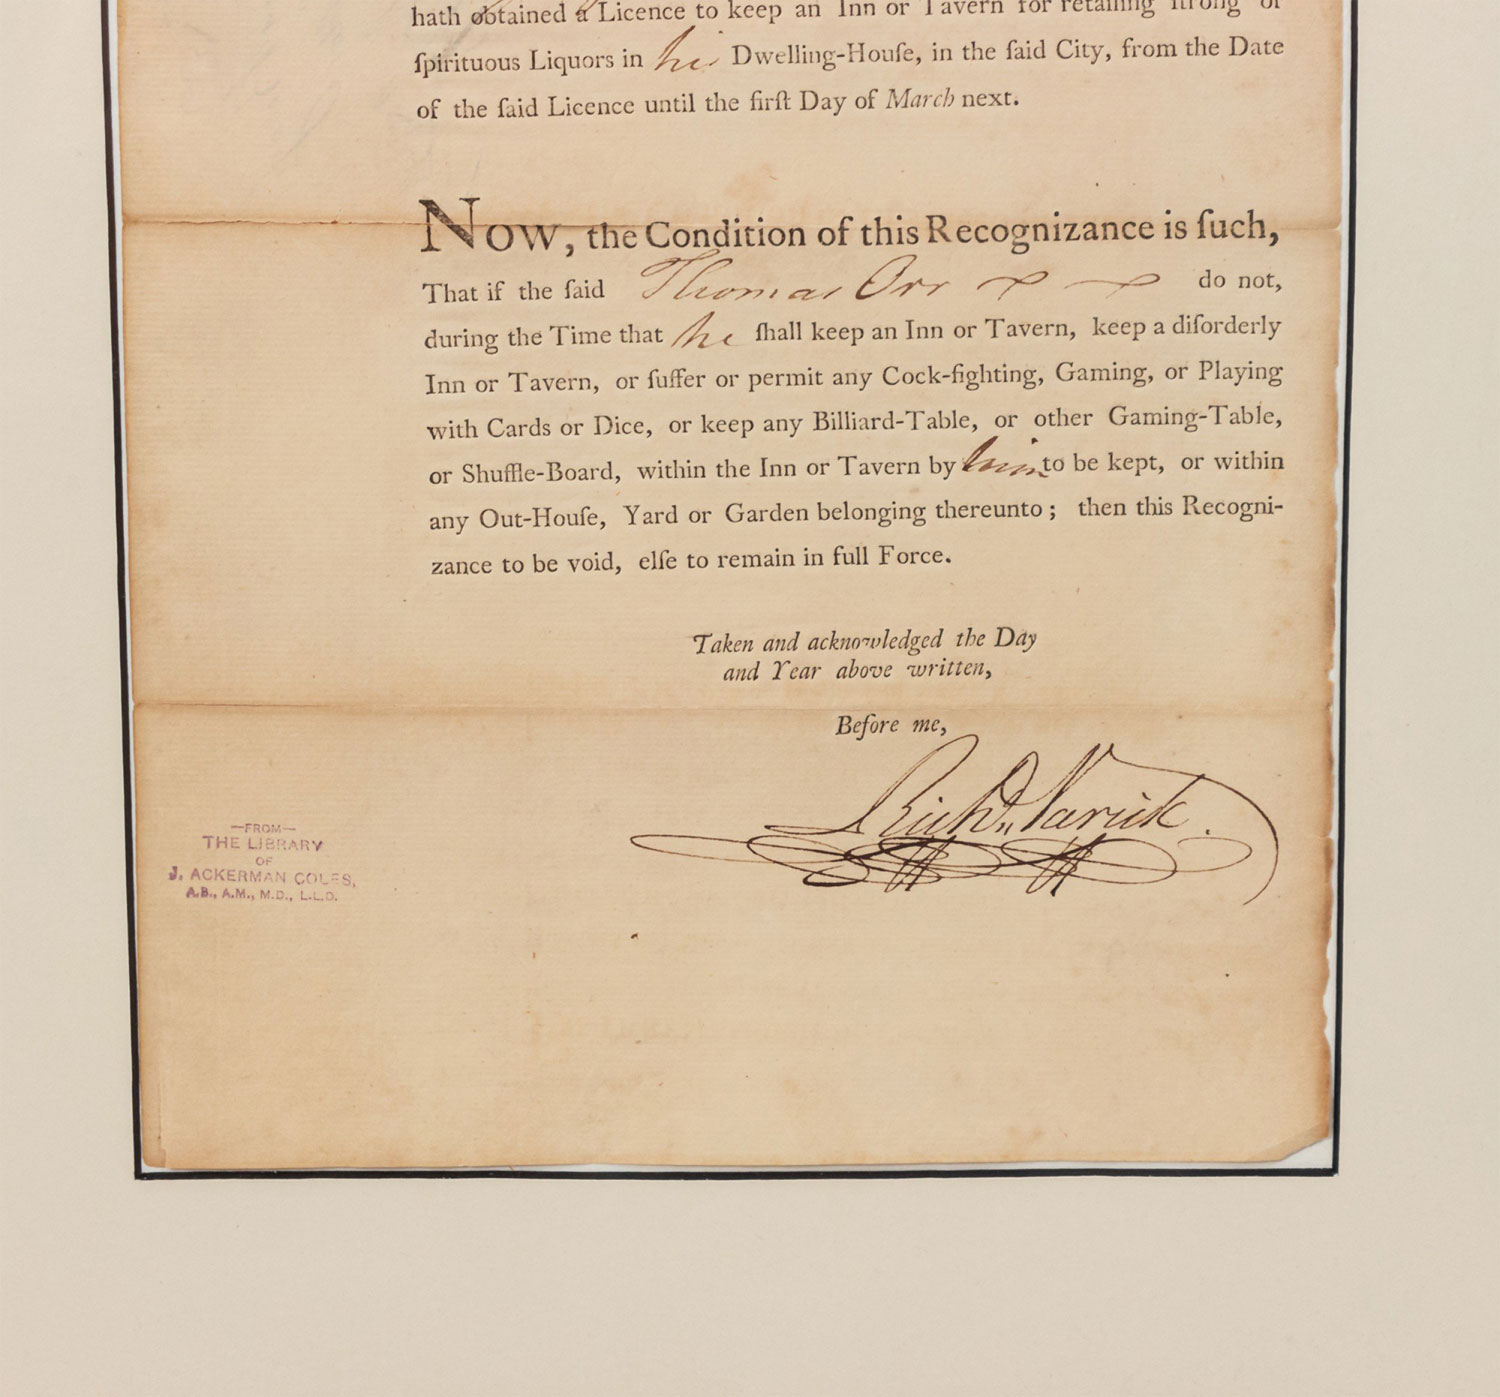 hath obtained a Licence to keep an Inn or Tavern for retailing ſtrong or
ſpirituous Liquors in his Dwelling-Houſe, in the ſaid City, from the Date
of the ſaid Licence until the firſt Day of March next.
Now, the Condition of this Recognizance is ſuch,
That if the ſaid Thomas Orr do not,
during the Time that he ſhall keep an Inn or Tavern, keep a diſorderly
Inn or Tavern, or ſuffer or permit any Cock-fighting, Gaming, or Playing
with Cards or Dice, or keep any Billiard-Table, or other Gaming-Table,
or Shuffle-Board, within the Inn or Tavern by him to be kept, or within
any Out-Houſe, Yard or Garden belonging thereunto; then this Recogni-
zance to be void, elſe to remain in full Force.
Taken and acknowledged the Day
and Year above written,
Before me,
Richd. Varick.
—FROM—
THE LIBRARY
OF
J. ACKERMAN COLES,
A.B., A.M., M.D., L.L.D.